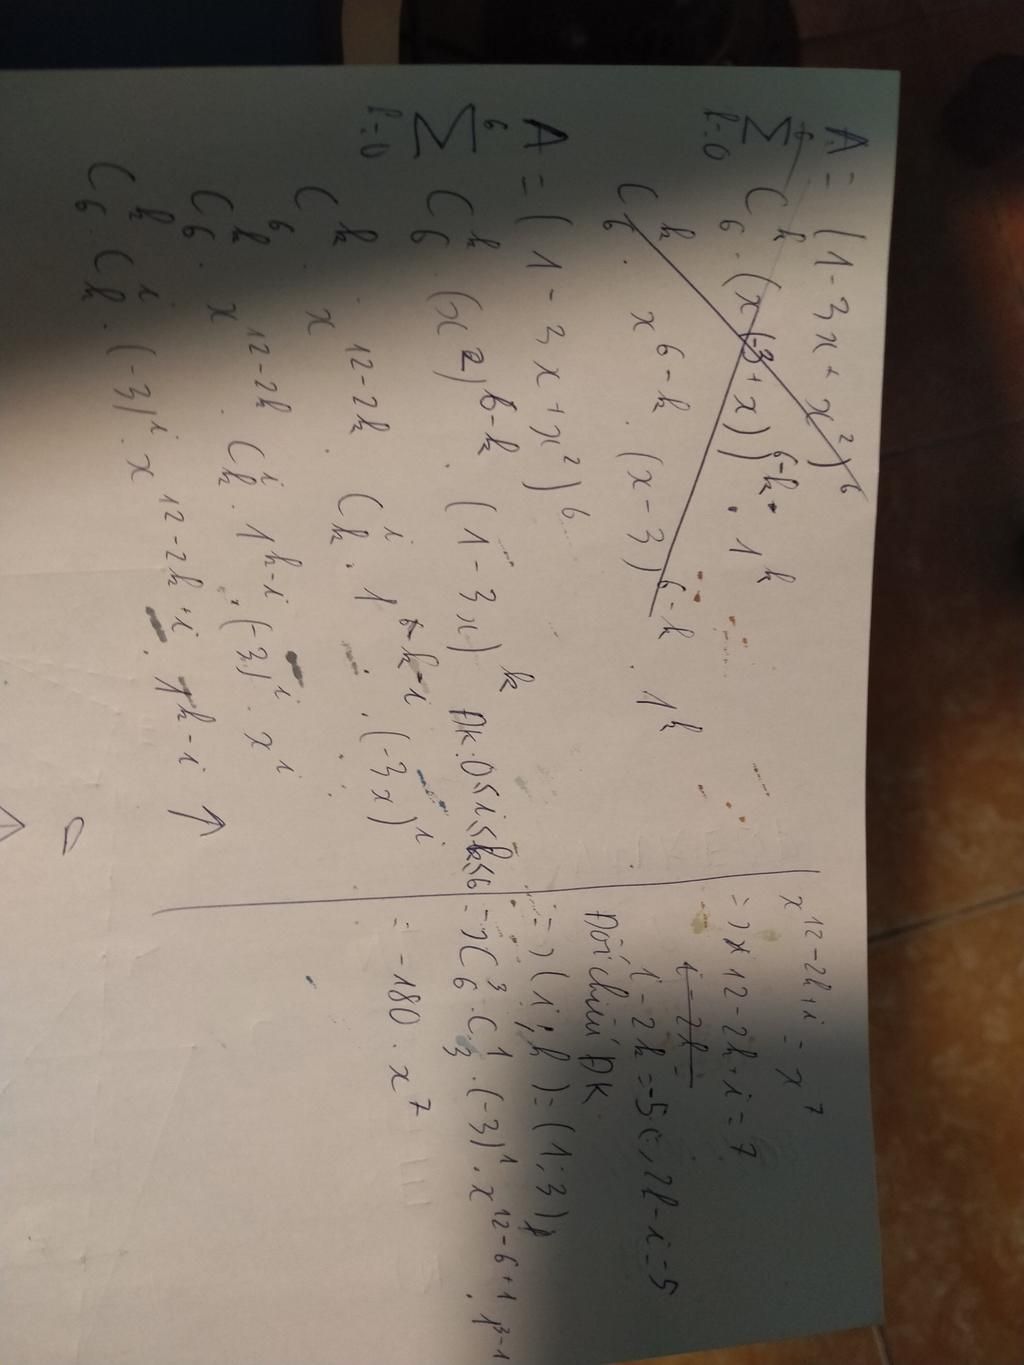 A = (1 - 3x + x²)⁶
∑_{k=0}^{6} C_6^k . (x(-3 + x))^{6-k} . 1^k
C_6^k . x^{6-k} . (x - 3)^{6-k} . 1^k
A = (1 - 3x + x²)⁶
∑_{k=0}^{6} C_6^k . (x²)^{6-k} . (1 - 3x)^k ĐK: 0≤i≤k≤6
C_6^k . x^{12-2k} . C_k^i . 1^{k-i} . (-3x)^i
C_6^k . x^{12-2k} . C_k^i . 1^{k-i} . (-3)^i . x^i
C_6^k . C_k^i . (-3)^i . x^{12-2k+i} . 1^{k-i} ↑
x^{12-2k+i} = x^7
=> 12 - 2k + i = 7
i - 2k =
i - 2k = -5 (, 2k - i = 5
Đối chiếu ĐK
=> (i; k) = (1; 3)
=> C_6^3 . C_3^1 . (-3)^1 . x^{12-6+1} . 1^{3-1}
= -180 . x^7